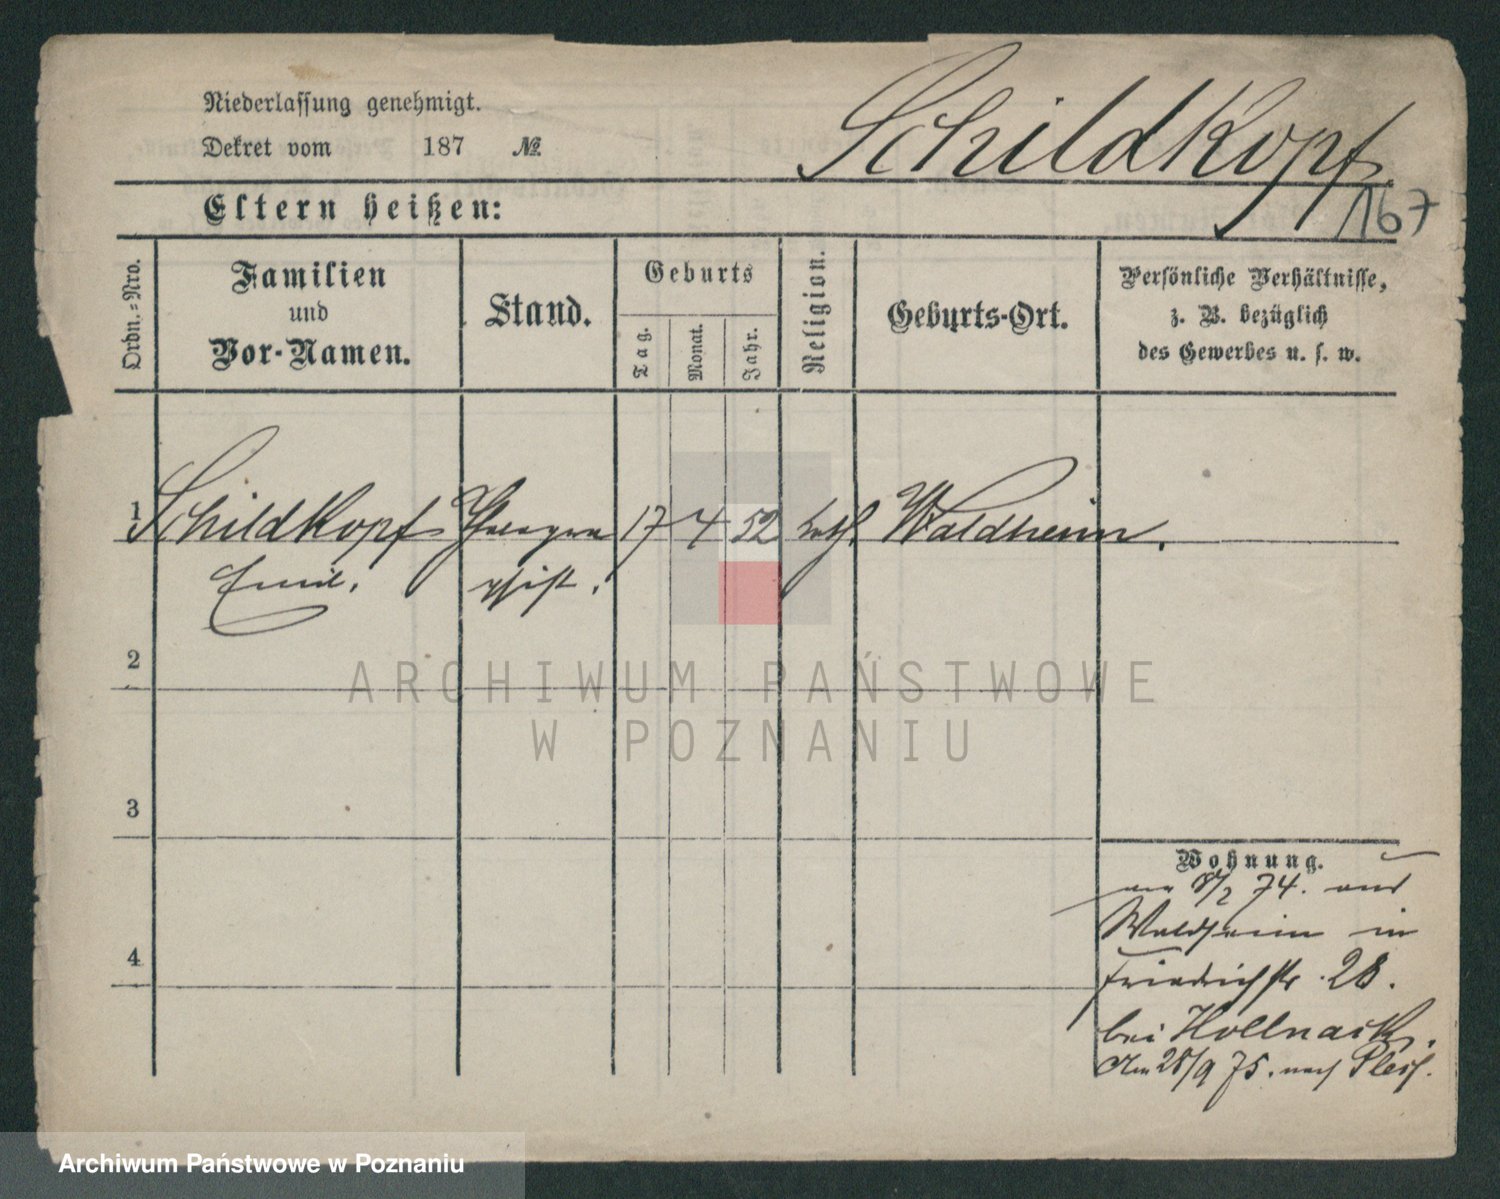 Schildkopf
Niederlassung genehmigt.
Dekret vom 187 №
167
Eltern heißen:
Ordn.-Nro.
Familien
und
Vor-Namen.
Stand.
Geburts
Tag.
Monat.
Jahr.
Religion.
Geburts-Ort.
Persönliche Verhältnisse,
z. B. bezüglich
des Gewerbes u. s. w.
1 Schildkopf 17 4 52 kath. Waldheim.
Emil.
2
ARCHIWUM PAŃSTWOWE
W POZNANIU
3
Wohnung.
8/2 74. aus
Waldheim in
Friedrichstr. 28.
4
bei Hollnack.
Am 28/9 75. nach Plesch.
Archiwum Państwowe w Poznaniu